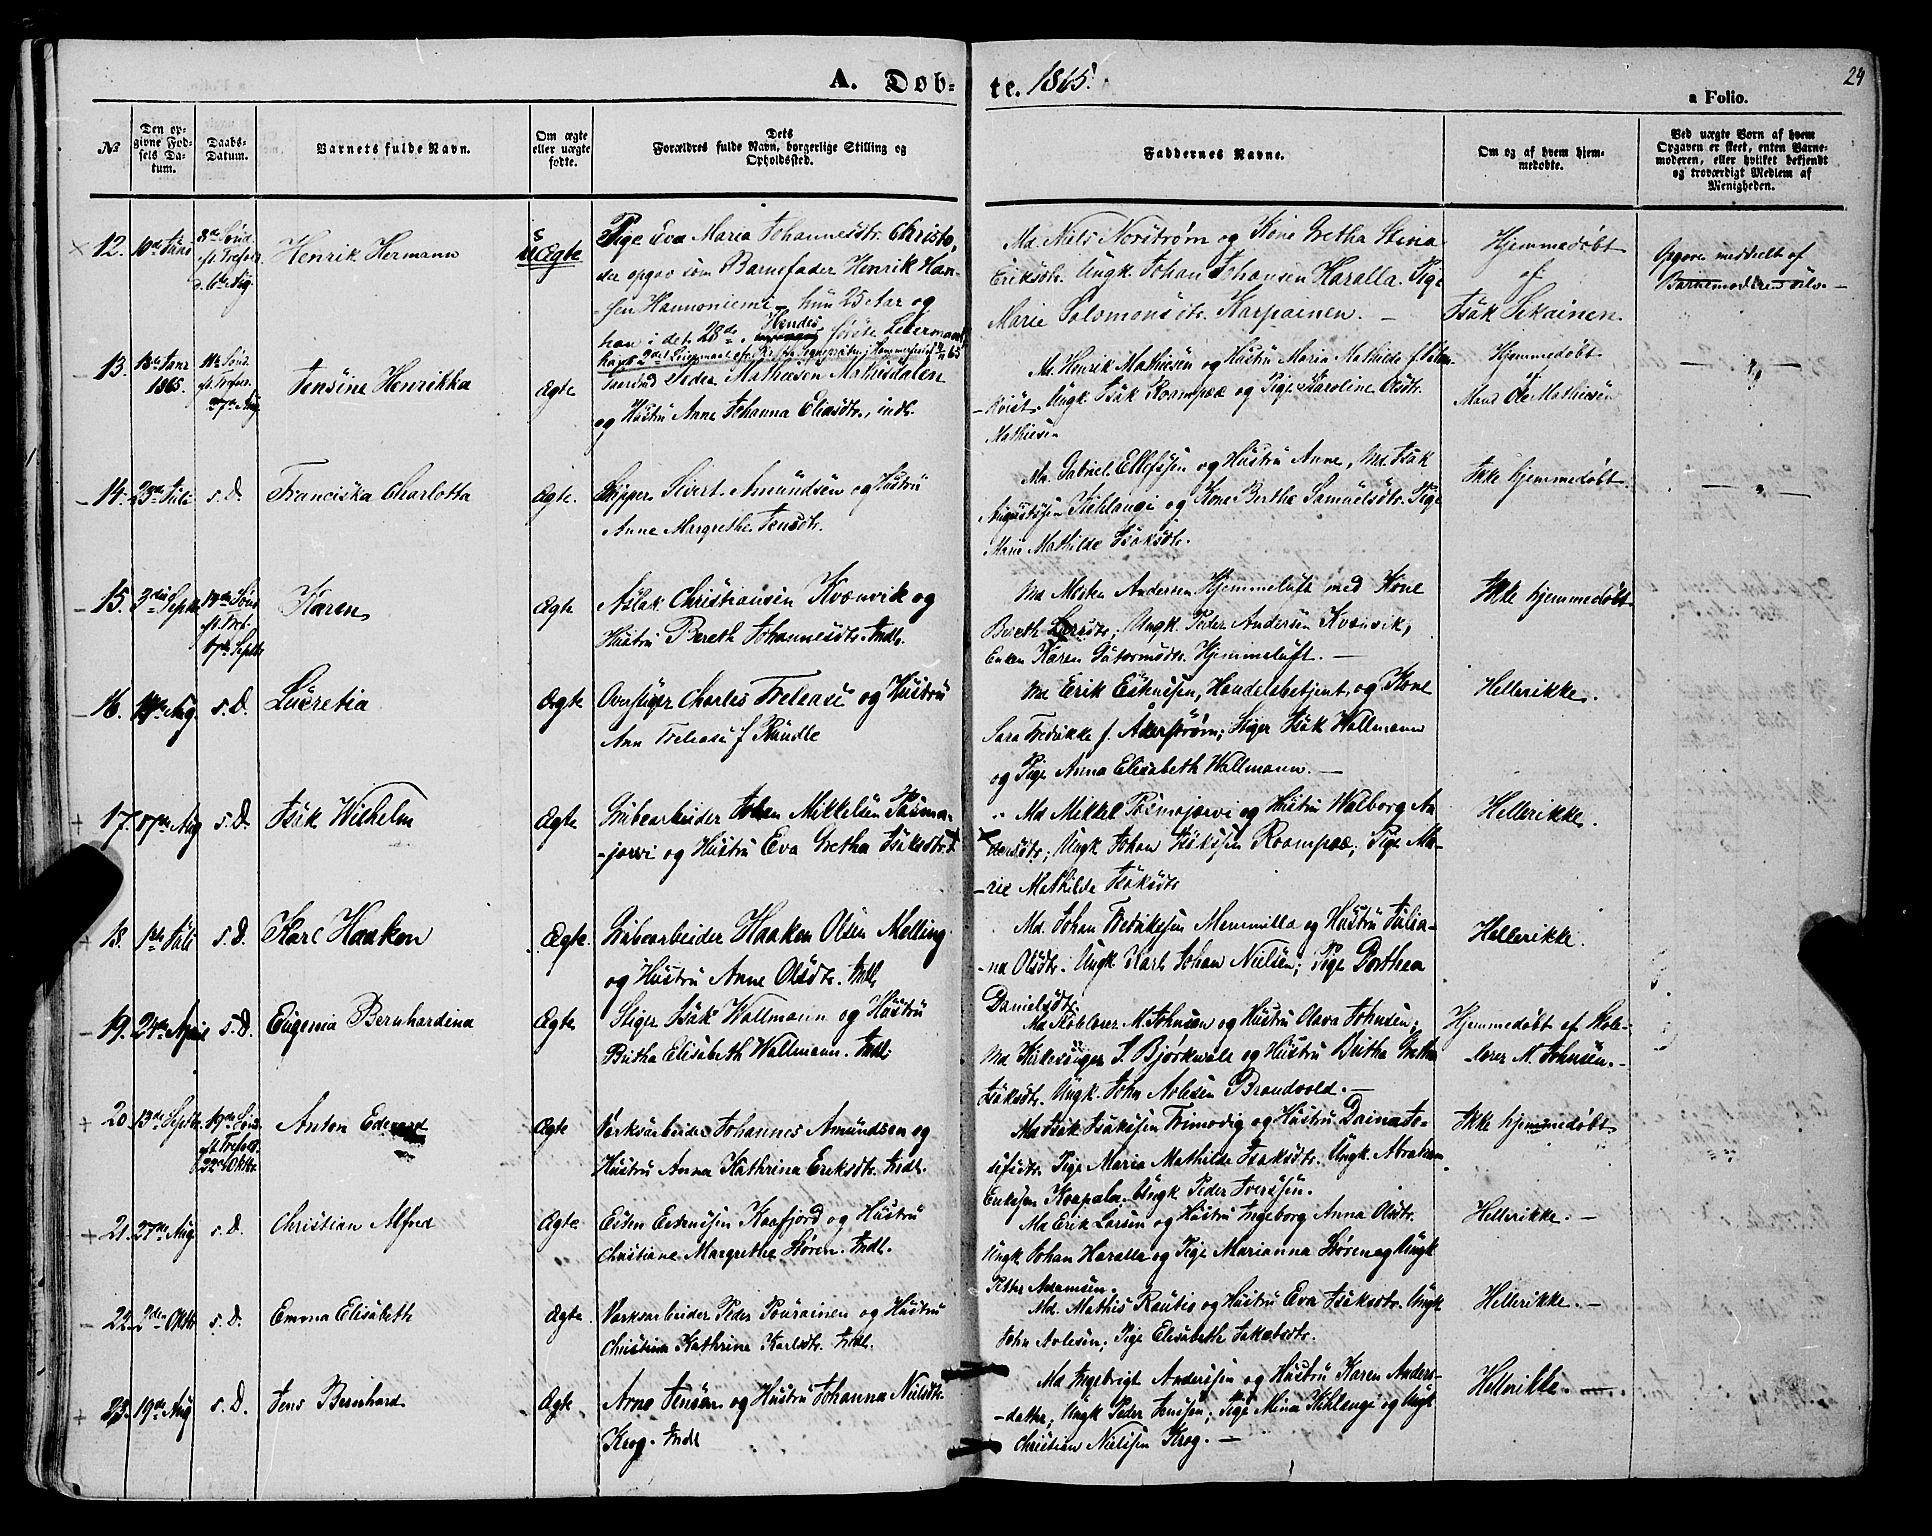 A. Døb-
te. 1865.
24
a Folio.
No.
Den op-
givne Fød-
sels Da-
tum.
Daabs-
Datum.
Barnets fulde Navn.
Om ægte
eller uægte
fødte.
Dets
Forældres fulde Navn, borgerlige Stilling og
Opholdssted.
Faddernes Navne.
Om og af hvem hjem-
medøbte.
Ved uægte Born af hvem
Opgaven er skeet, enten Barne-
moderen, eller hvilket bekjendt
og troværdigt Medlem af
Menigheden.
12. 10de Juni
8de Sønd.
eft. Trefold.
d. 6te Aug.
Henrik Hermann
uÆgte
Pige Eva Maria Johannesdtr. Christo,
der opgav som Barnefader Henrik Han-
sen Hannoniemi hun 25 Aar og
han i det 28de. Hendes første Leiermaal,
Md. Niels Norstrøm og Kone Gretha Stina
Eriksdtr. Ungk. Johan Johansen Karalla. Pige
Marie Salomonsdtr. Karpainen. —
Hjemmedøbt
af
Isak Sikainen.
Opgave meddeelt af
Barnemoderen selv. —
13. 18de Janr
1865.
11te Sønd.
eft. Trefold.
27de Aug.
Jensine Henrikka
Ægte
Inerind Peder Mathiesen Mathisdalen
og Hustru Anne Johanna Eliasdtr., indl.
Md. Henrik Mathiesen og Hustru Maria Mathilde f. Palm-
-kvist. Ungk. Isak Roampææ og Pige Karoline Olsdtr.
Mathiesen
Hjemmedøbt
af
Mand Ole Mathiesen
— " —
14. 23de Juli
s. D.
Franciska Charlotta
Ægte.
Skipper Sivert Amundsen og Hustru
Anne Margrethe Jensdtr.
Md. Gabriel Ellefssen og Hustru Anne, Md. Isak
Augustssen Kihlangi og Kone Brithe Samuelsdtr. Pige
Marie Mathilde Isaksdtr.
Ikke hjemmedøbt
— " —
15. 3die Septbr
14de Sønd
eft. Tref.
17de Septbr
Karen
Ægte
Aslak Christiansen Kvænvik og
Hustru Bereth Johannesdtr. Indl.
Md Morten Andersen Hjemmeluft med Kone
Bereth Larsdtr; Ungk. Peder Andersen Kvænvik;
Enken Karen Guttormsdtr. Hjemmeluft. —
Ikke hjemmedøbt
16. 14de Aug
s. D.
Lucretia
Ægte
Overstiger Charles Trelease og Hustru
Ann Trelease f. Rundle
Md Erik Eskessen, Handelsbetjent, og Kone
Sara Fredrikke f. Åkerstrøm; Stiger Isak Wallmann
og Pige Anna Elisabeth Wallmann. —
Hellerikke.
17. 17de Aug
s. D.
Isak Wilhelm
Ægte
Grubearbeider Johan Mikkelsen Pasma-
-jarvi og Hustru Eva Gretha Isaksdtr.
Md Mikkel Pasmajarvi og Hustru Walborg An-
dersdtr; Ungk. Johan Isakssen Roampææ; Pige Ma-
-rie Mathilde Isaksdtr
Hellerikke.
18. 1ste Juli
s. D.
Karl Haaken
Ægte.
Grubearbeider Haaken Olsen Melling
og Hustru Anne Olsdtr. Indl.
Md. Johan Fredrikssen Memmilla og Hustru Julia-
-na Olsdtr. Ungk. Karl Johan Nielsen; Pige Dorthea
Danielsdtr.
Hellerikke.
19. 24de April
s. D.
Eugenia Bernhardina
Ægte
Stiger Isak Wallmann og Hustru
Britha Elisabeth Wallmann. Indl.
Md Skolelærer M. Johnsen og Hustru Olava Johnsen;
Md Kirkesanger I. Bjørkwall og Hustru Britha Gretha
Isaksdtr. Ungk. John Arlesen Brandvold. —
Hjemmedøbt af Skole-
lærer M. Johnsen. —
20. 13de Septbr.
19de Sønd
eft. Trefold.
22de Oktbr.
Anton Edevart
Ægte
Værksarbeider Johannes Amundsen og
Hustru Anna Kathrina Eriksdtr. Indl.
Md Isak Isakssen Frimodig og Hustru Daina Jo-
sefsdtr. Pige Maria Mathilde Isaksdtr. Ungk. Abraham
Erikssen Koapala. Ungk. Peder Iverssen.
Ikke hjemmedøbt
21. 27de Aug
s. D.
Christian Alfred
Ægte
Esten Estenssen Kaafjord og Hustru
Christiane Margrethe Støren. Indl.
Md Erik Larsen og Hustru Ingeborg Anna Olsdtr.
Ungk Johan Haralla og Pige Marianna Støren og Ungk
Petter Adamsen.
Hellerikke. —
22. 2den Oktbr
s. D.
Emma Elisabeth
Ægte.
Værksarbeider Peder Pourainen og Hustru
Christina Kathrine Karlsdtr. Indl.
Md. Mathis Rautio og Hustru Eva Isaksdtr. Ungk
John Arlesen; Pige Elisabeth Jakobsdtr.
Hellerikke. —
23. 19de Aug
s. D.
Jens Bernhard
Ægte
Arne Jensen og Hustru Johanna Nielsdtr
Krog. Indl
Md Ingebrigt Anderssen og Hustru Karen Anders-
-datter; Ungk Peder Jenssen; Pige Mina Kihlangi og Ungk
Christian Nielssen Krog. —
Hellerikke. —